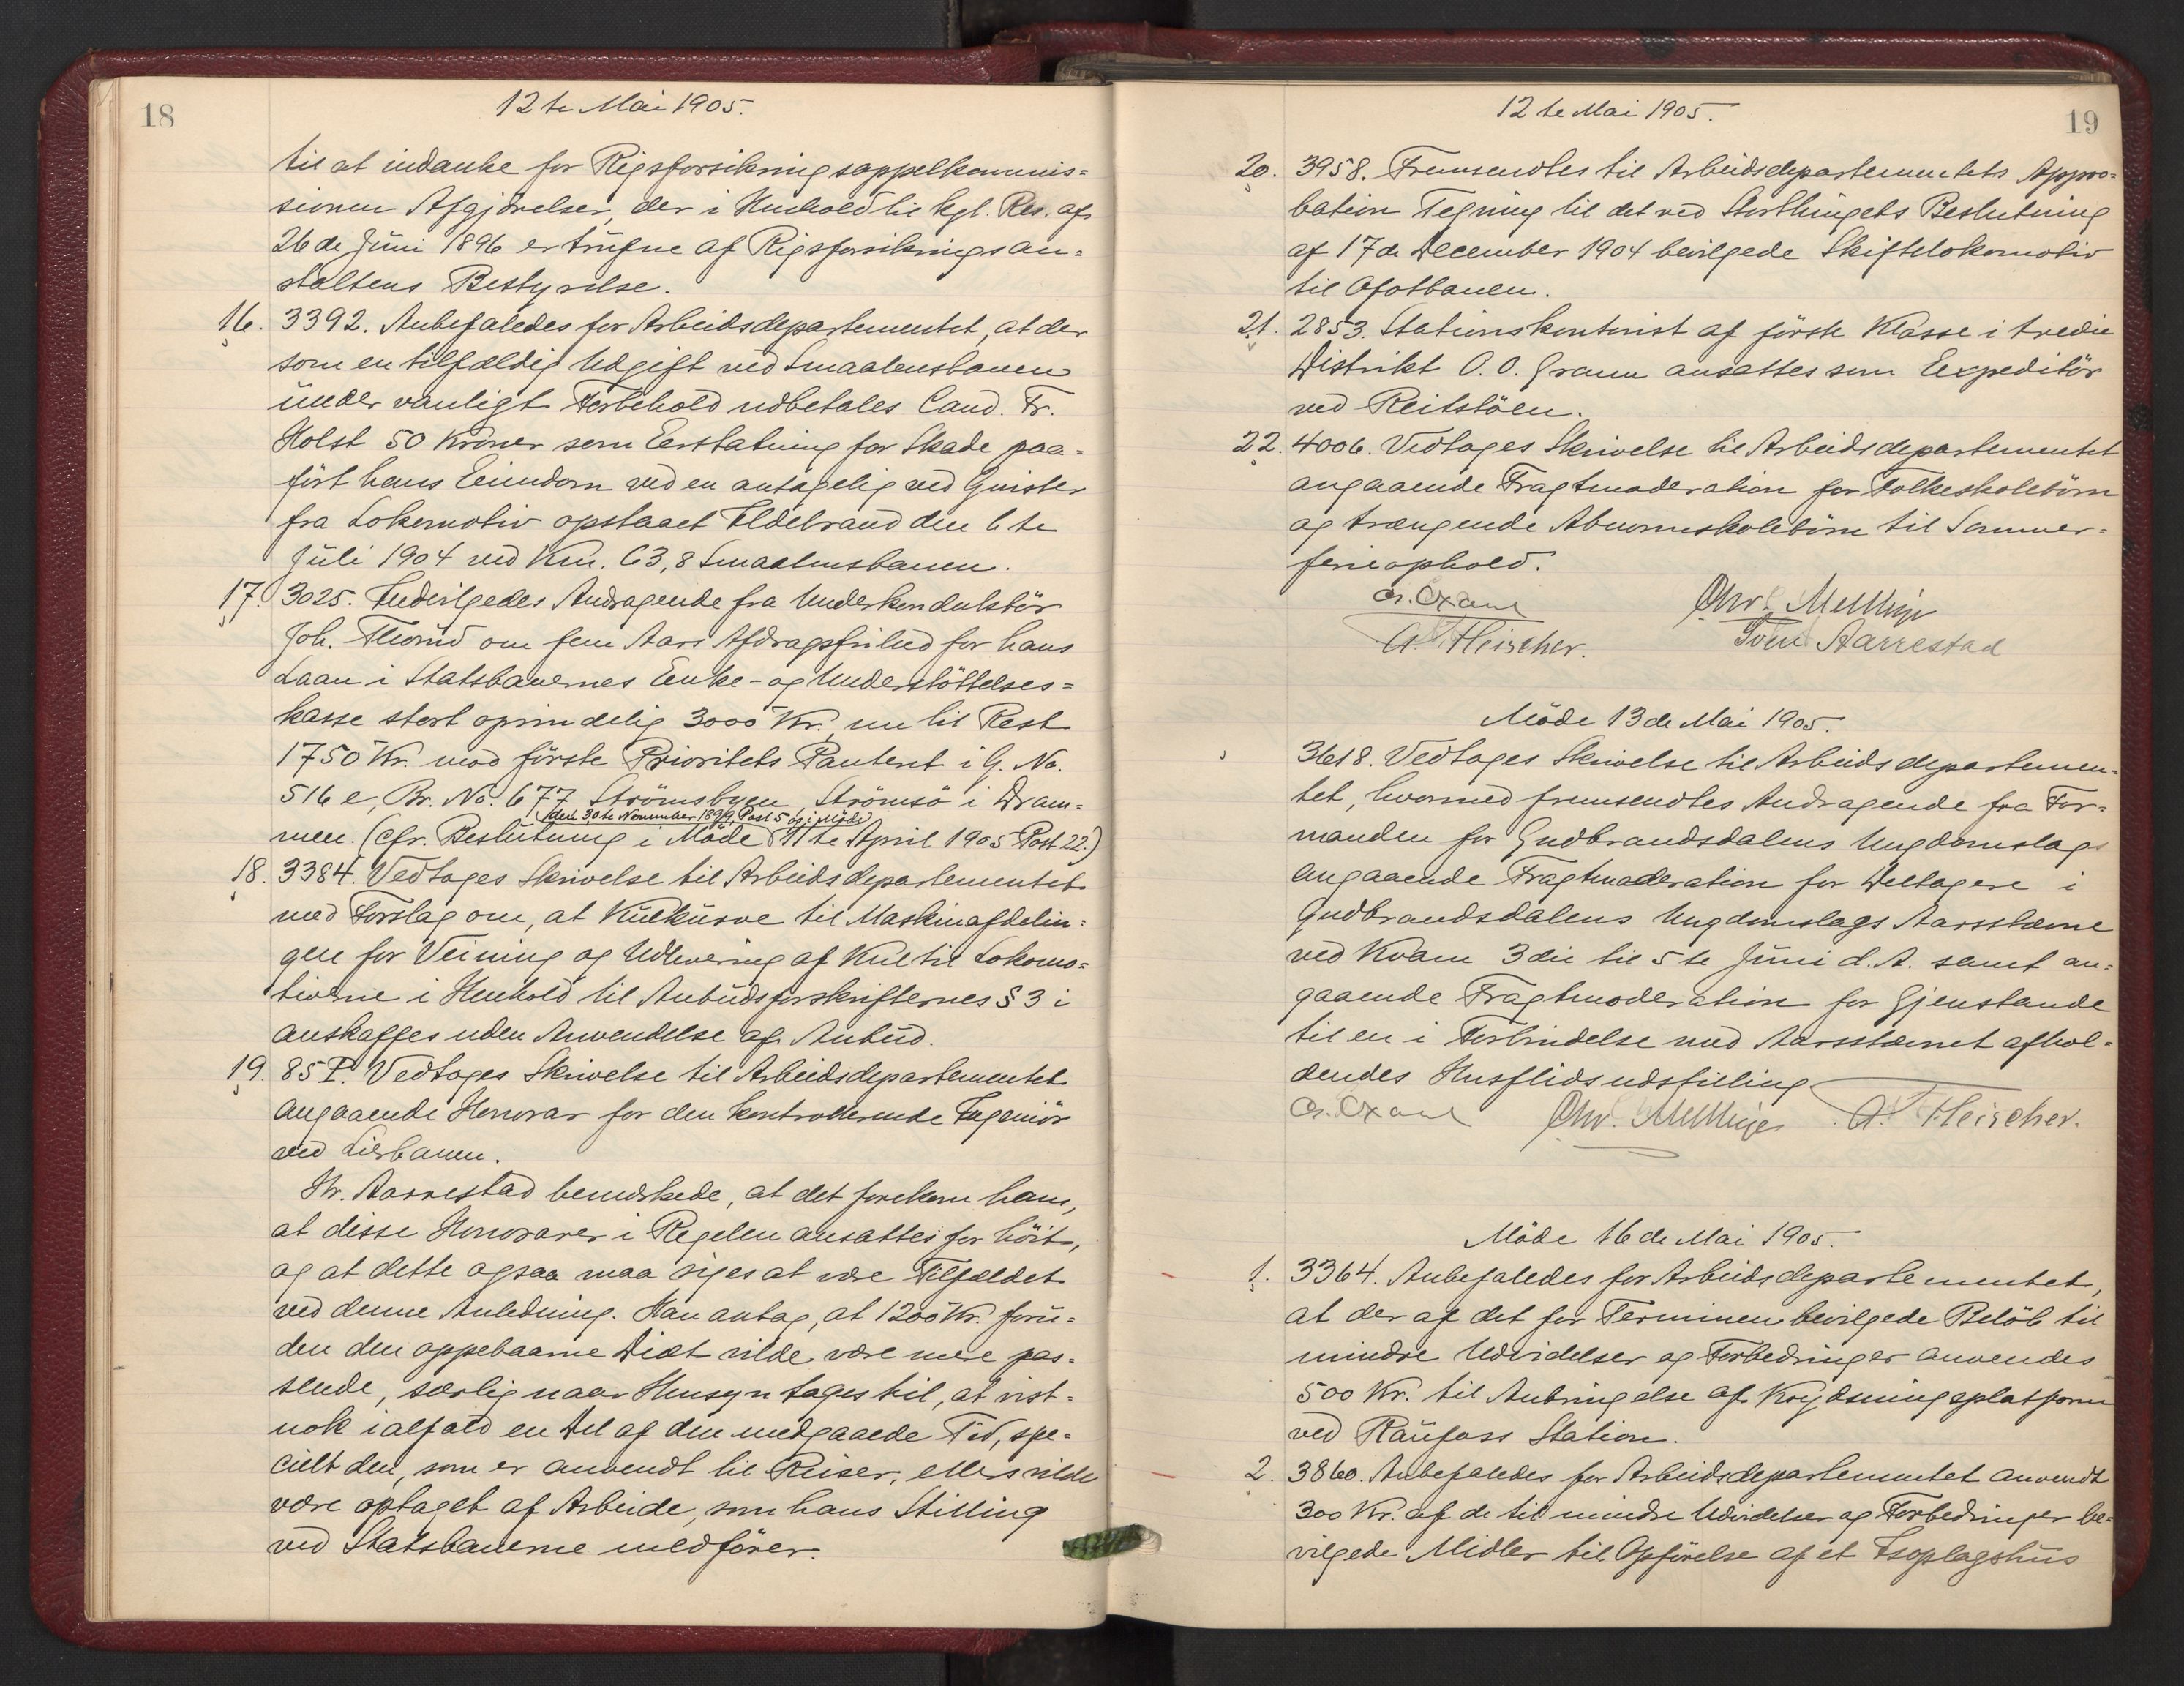 18
12te Mai 1905.
til at indanke for Rigsforsikringsappelkommis=
sionen Afgjörelser, der i Henhold til kgl. Res. af
26de Juni 1896 er trufne af Rigsforsikringsan=
staltens Bestyrelse.
16. 3392. Anbefaledes for Arbeidsdepartementet, at der
som en tilfældig Udgift ved Smaalensbanen
under vanligt Forbehold udbetales Cand. Fr.
Holst 50 Kroner som Erstatning for Skade paa=
fört hans Eiendom ved en antagelig ved Gnister
fra Lokomotiv opstaaet Ildebrand den 6te
Juli 1904 ved Km. 63,8 Smaalensbanen.
17. 3025. Indvilgedes Andragende fra Underkonduktör
Joh. Thorud om fem Aars Afdragsfrihed for hans
Laan i Statsbanernes Enke- og Understöttelses=
kasse stort oprindelig 3000 Kr., nu til Rest
1750 Kr. mod förste Prioritets Panteret i G. No.
516 e, Br. No. 677 Strömsbyen, Strömsö i Dram=
den 30te November 1899, Post 5 og i Möde
men. (cfr. Beslutning i Möde 11te April 1905 Post 22.)
18. 3384. Vedtoges Skrivelse til Arbeidsdepartementet
med Forslag om, at Kulkurve til Maskinafdelin=
gen for Veining og Udlevering af Kul til Lokomo=
tiverne i Henhold til Anbudsforskrifternes § 3 i
anskaffes uden Anvendelse af Anbud.
19. 85 P. Vedtoges Skrivelse til Arbeidsdepartementet
angaaende Honorar for den kontrollerende Ingeniör
ved Lierbanen.
Hr. Aarrestad bemerkede, at det forekom ham,
at disse Honorarer i Regelen ansattes for höit,
og at dette ogsaa maa siges at være Tilfældet
ved denne Anledning. Han antog, at 1200 Kr. foru=
den den oppebaarne Diæt vilde være mere pas=
sende, særlig naar Hensyn tages til, at vist=
nok ialfald en Del af den medgaaede Tid, spe=
cielt den, som er anvendt til Reiser, ellers vilde
være optaget af Arbeide, som hans Stilling
ved Statsbanerne medförer.
12te Mai 1905.
19
20. 3958. Fremsendtes til Arbeidsdepartementets Appro=
bation Tegning til det ved Storthingets Beslutning
af 17de December 1904 bevilgede Skiftelokomotiv
til Ofotbanen.
21. 2853. Stationskontorist af förste Klasse i tredie
Distrikt O. O. Gramm ansattes som Expeditör
ved Reitstöen.
22. 4006. Vedtoges Skrivelse til Arbeidsdepartementet
angaaende Fragtmoderation for Folkeskolebörn
og trængende Abnormskolebörn til Sommer=
ferieophold.
Chr. Mellbye
A. Fleischer.
Sven Aarrestad
Möde 13de Mai 1905.
3618. Vedtoges Skrivelse til Arbeidsdepartemen=
tet, hvormed fremsendtes Andragende fra For=
manden for Gudbrandsdalens Ungdomslag
angaaende Fragtmoderation for Deltagere i
Gudbrandsdalens Ungdomslags Aarsstævne
ved Kvam 3die til 5te Juni d. A. samt an=
gaaende Fragtmoderation for Gjenstande
til en i Forbindelse med Aarsstævnet afhol=
dendes Husflidsudstilling.
Chr. Mellbye A. Fleischer.
Möde 16de Mai 1905.
1. 3364. Anbefaledes for Arbeidsdepartementet,
at der af det for Terminen bevilgede Belöb til
mindre Udvidelser og Forbedringer anvendes
500 Kr. til Anbringelse af Krydsningsplatform
ved Raufoss Station.
2. 3860. Anbefaledes for Arbeidsdepartementet anvendt
300 Kr. af de til mindre Udvidelser og Forbedringer be=
vilgede Midler til Opförelse af et Isoplagshus